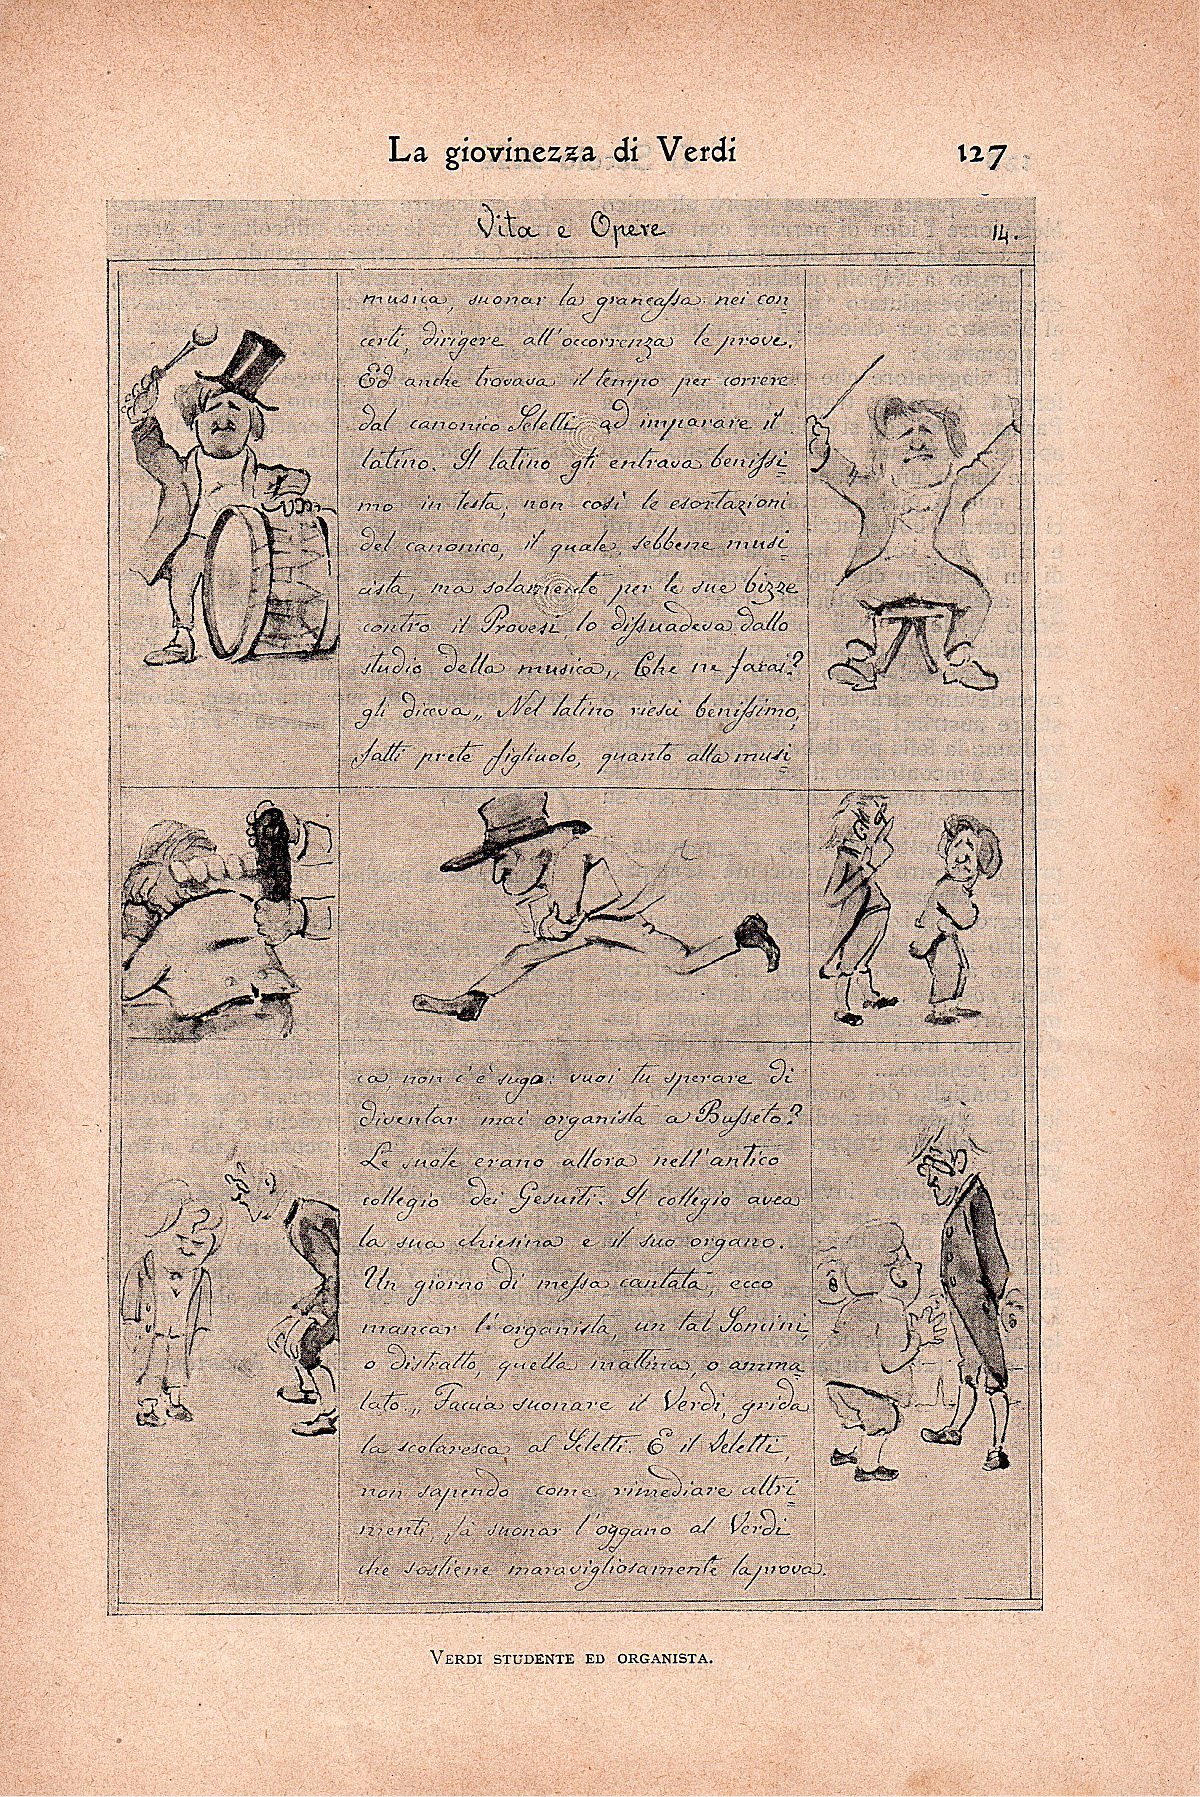 La giovinezza di Verdi
127
Vita e Opere
14.
musica, suonar la grancassa nei con
certi, dirigere all'occorrenza le prove.
Ed anche trovava il tempo per correre
dal canonico Seletti, ad imparare il
latino. Il latino gli entrava benissi
mo in testa, non così le esortazioni
del canonico, il quale, sebbene musi
cista, ma solamente per le sue bizze
contro il Provesi, lo dissuadeva dallo
studio della musica, „ Che ne farai?
gli diceva „ Nel latino riesci benissimo,
fatti prete figliuolo, quanto alla musi
ca, non c'è sugo: vuoi tu sperare di
diventar mai organista a Busseto?
Le suole erano allora nell'antico
collegio dei Gesuiti. Il collegio avea
la sua chiesina e il suo organo.
Un giorno di messa cantata, ecco
mancar l'organista, un tal Soncini,
o distratto, quella mattina, o amma
lato. „ Faccia suonare il Verdi, grida
la scolaresca al Seletti. E il Seletti,
non sapendo come rimediare altri
menti, fà suonar l'oggano al Verdi
che sostiene maravigliosamente la prova.
VERDI STUDENTE ED ORGANISTA.